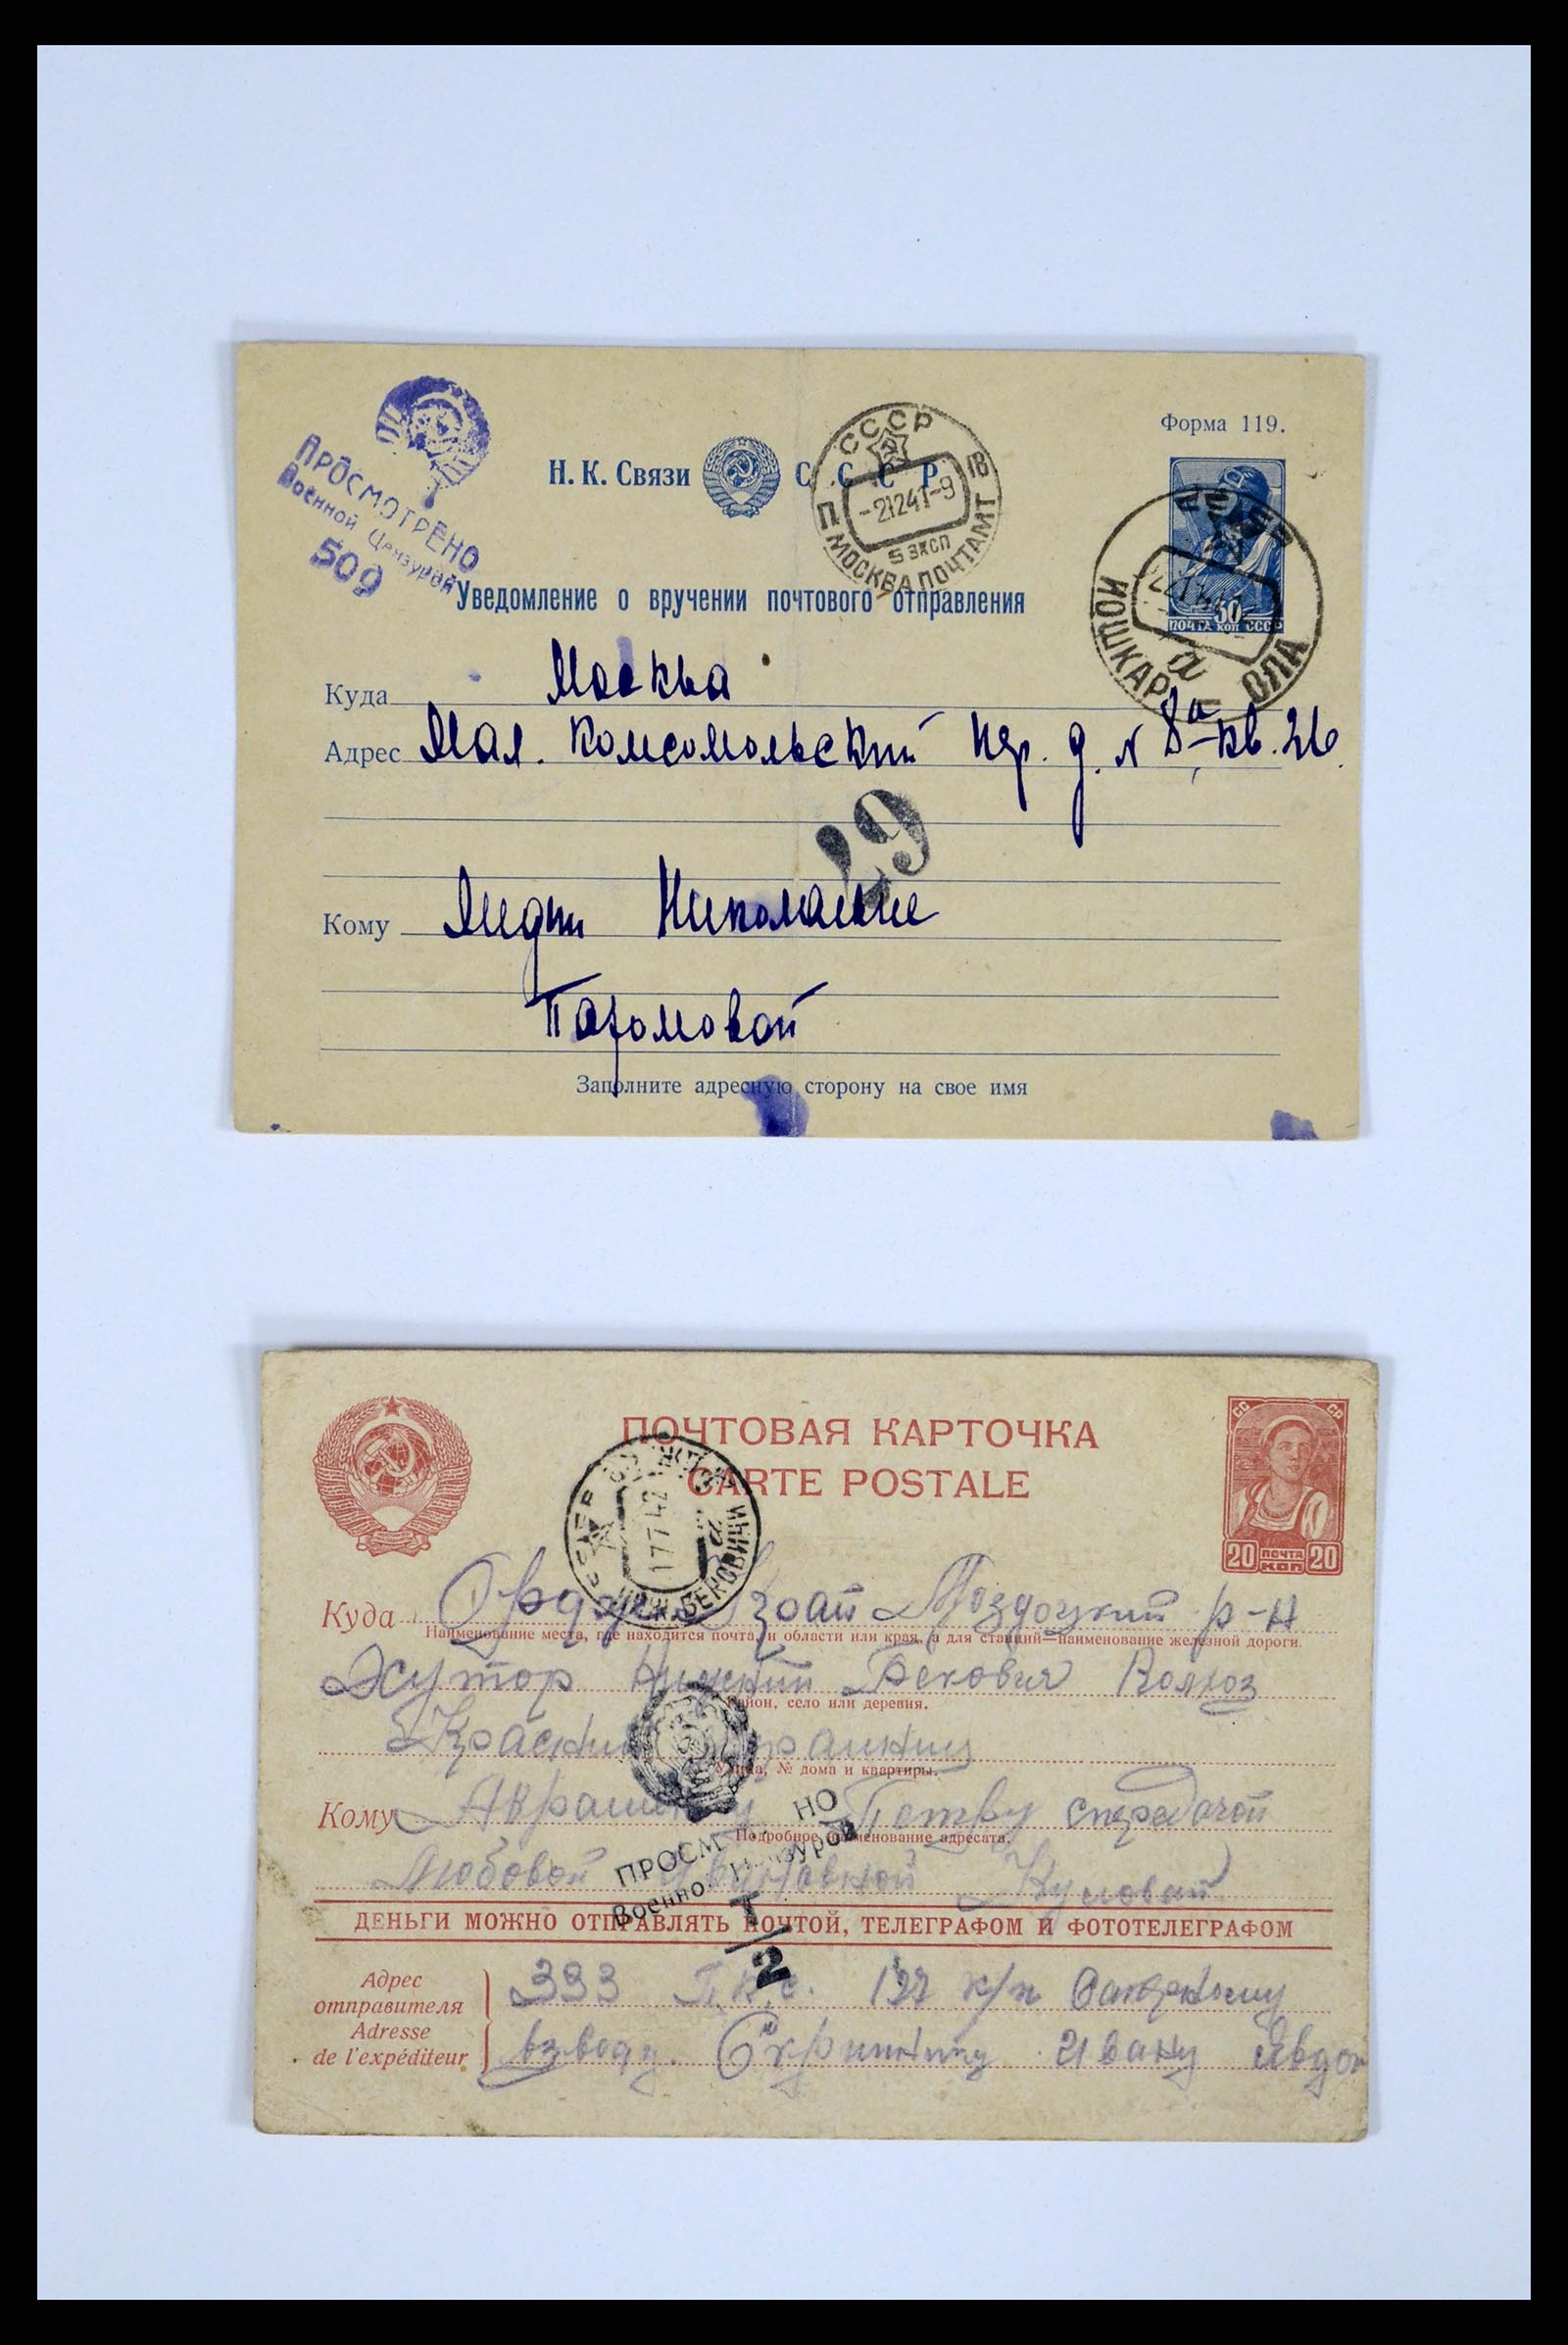 Форма 119.
Н. К. Связи С С С Р
ПРОСМОТРЕНО
Военной Цензурой
509
СССР
-21241-9
5 ЭКСП
МОСКВА ПОЧТАМТ
30
ПОЧТА КОП СССР
ЙОШКАР ОЛА
а
Уведомление о вручении почтового отправления
Куда Москва
Адрес Мал. Комсомольский пер. д. № 8а кв. 26
29
Кому Лидии Николаевне
Пахомовой
Заполните адресную сторону на свое имя
ПОЧТОВАЯ КАРТОЧКА
CARTE POSTALE
СС СР
20 ПОЧТА КОП 20
17 7 42
Куда Моздокский р-н
Наименование места, где находится почта, и области или края, а для станций—наименование железной дороги.
Хутор Нижний Бекович Колхоз
Район, село или деревня.
Улица, № дома и квартиры.
Кому Петру с передачой
Подробное наименование адресата.
Любовой
ПРОСМ НО
Военной Цензурой
Т/2
ДЕНЬГИ МОЖНО ОТПРАВЛЯТЬ ПОЧТОЙ, ТЕЛЕГРАФОМ И ФОТОТЕЛЕГРАФОМ
Адрес отправителя 393
Adresse de l'expéditeur взводу. Ивану